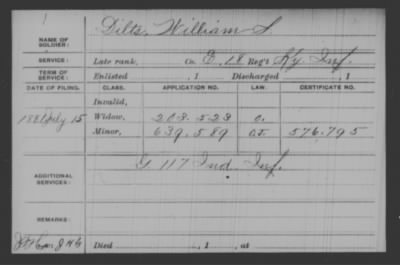 1
NAME OF SOLDIER: Dilts, William S.
SERVICE: Late rank, Co. E, 18 Reg't Ky. Inf.
TERM OF SERVICE: Enlisted , 1 Discharged , 1
DATE OF FILING. CLASS. APPLICATION NO. LAW. CERTIFICATE NO.
Invalid,
July 15 Widow, 208.523 O.
Minor, 639.589 576.795
ADDITIONAL SERVICES: G 117 Ind. Inf.
REMARKS:
Died , 1 , at